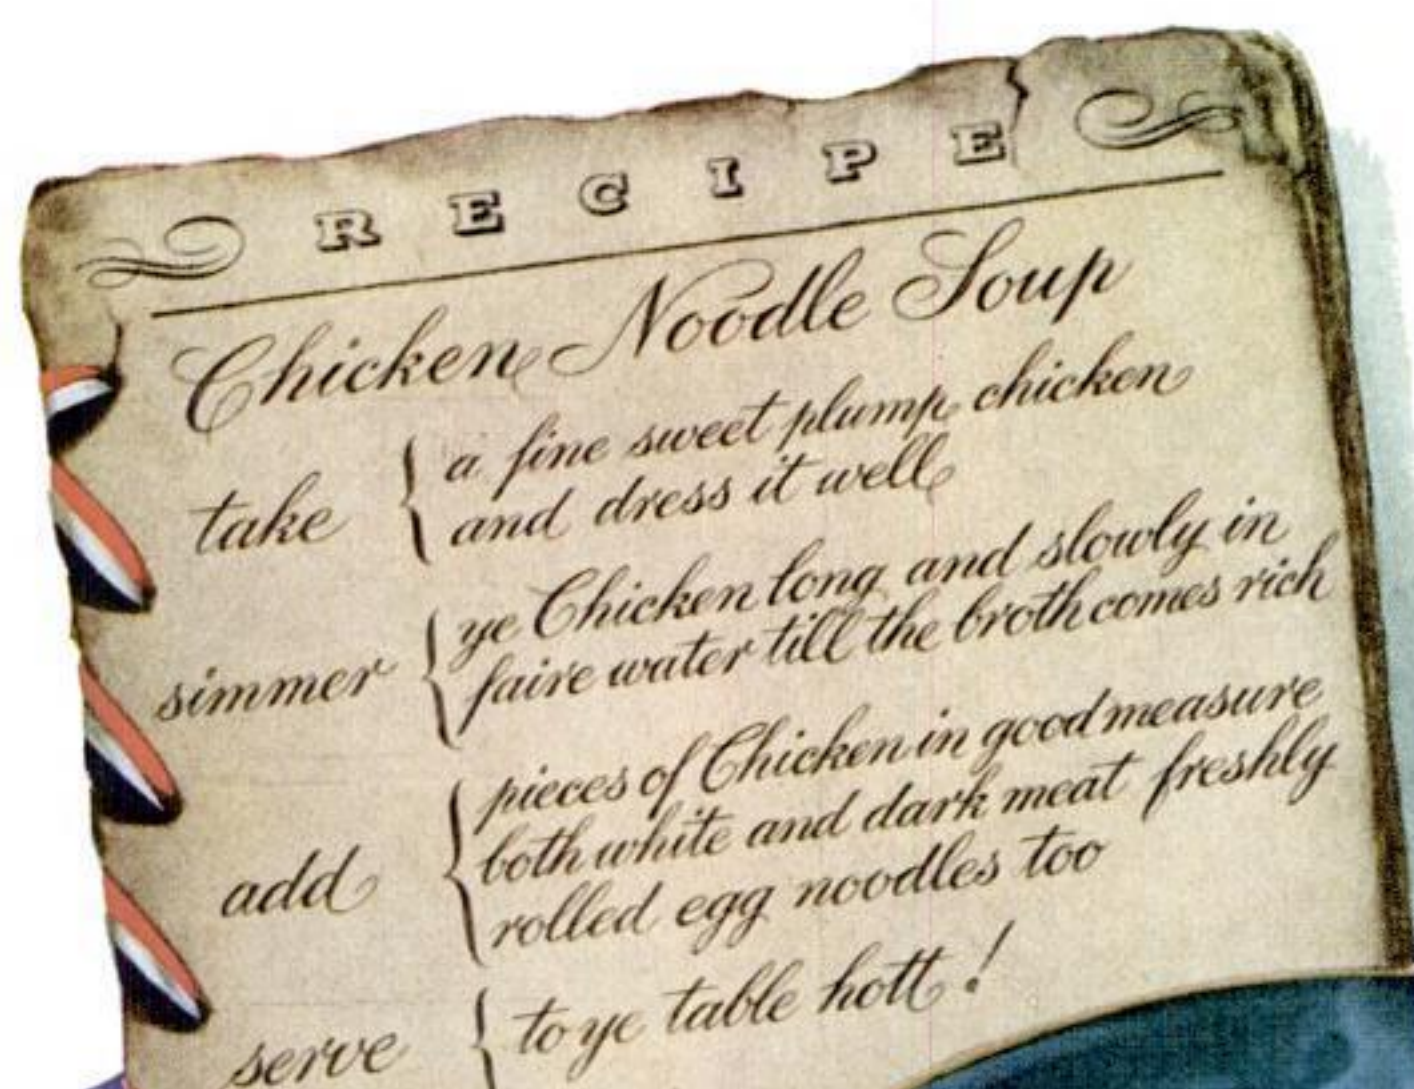 RECIPE
Chicken Noodle Soup
take { a fine sweet plump chicken
and dress it well
simmer { ye Chicken long and slowly in
faire water till the broth comes rich
add { pieces of Chicken in good measure
both white and dark meat freshly
rolled egg noodles too
serve { to ye table hott!